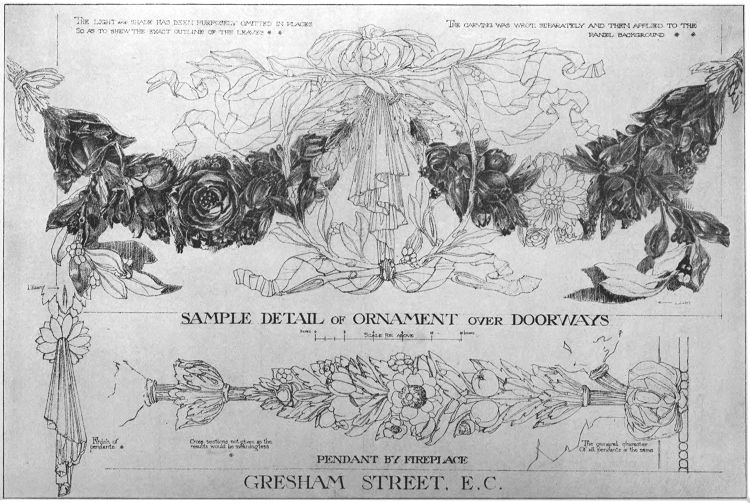 THE LIGHT AND SHADE HAS BEEN PURPOSELY OMITTED IN PLACES
SO AS TO SHEW THE EXACT OUTLINE OF THE LEAVES
THE CARVING WAS WROT SEPARATELY AND THEN APPLIED TO THE
PANEL BACKGROUND
SAMPLE DETAIL OF ORNAMENT OVER DOORWAYS
SCALE FOR ABOVE
Finish of
pendants
Cross sections not given as the
results would be meaningless
The general character
Of all pendants is the same
PENDANT BY FIREPLACE
GRESHAM STREET, E.C.